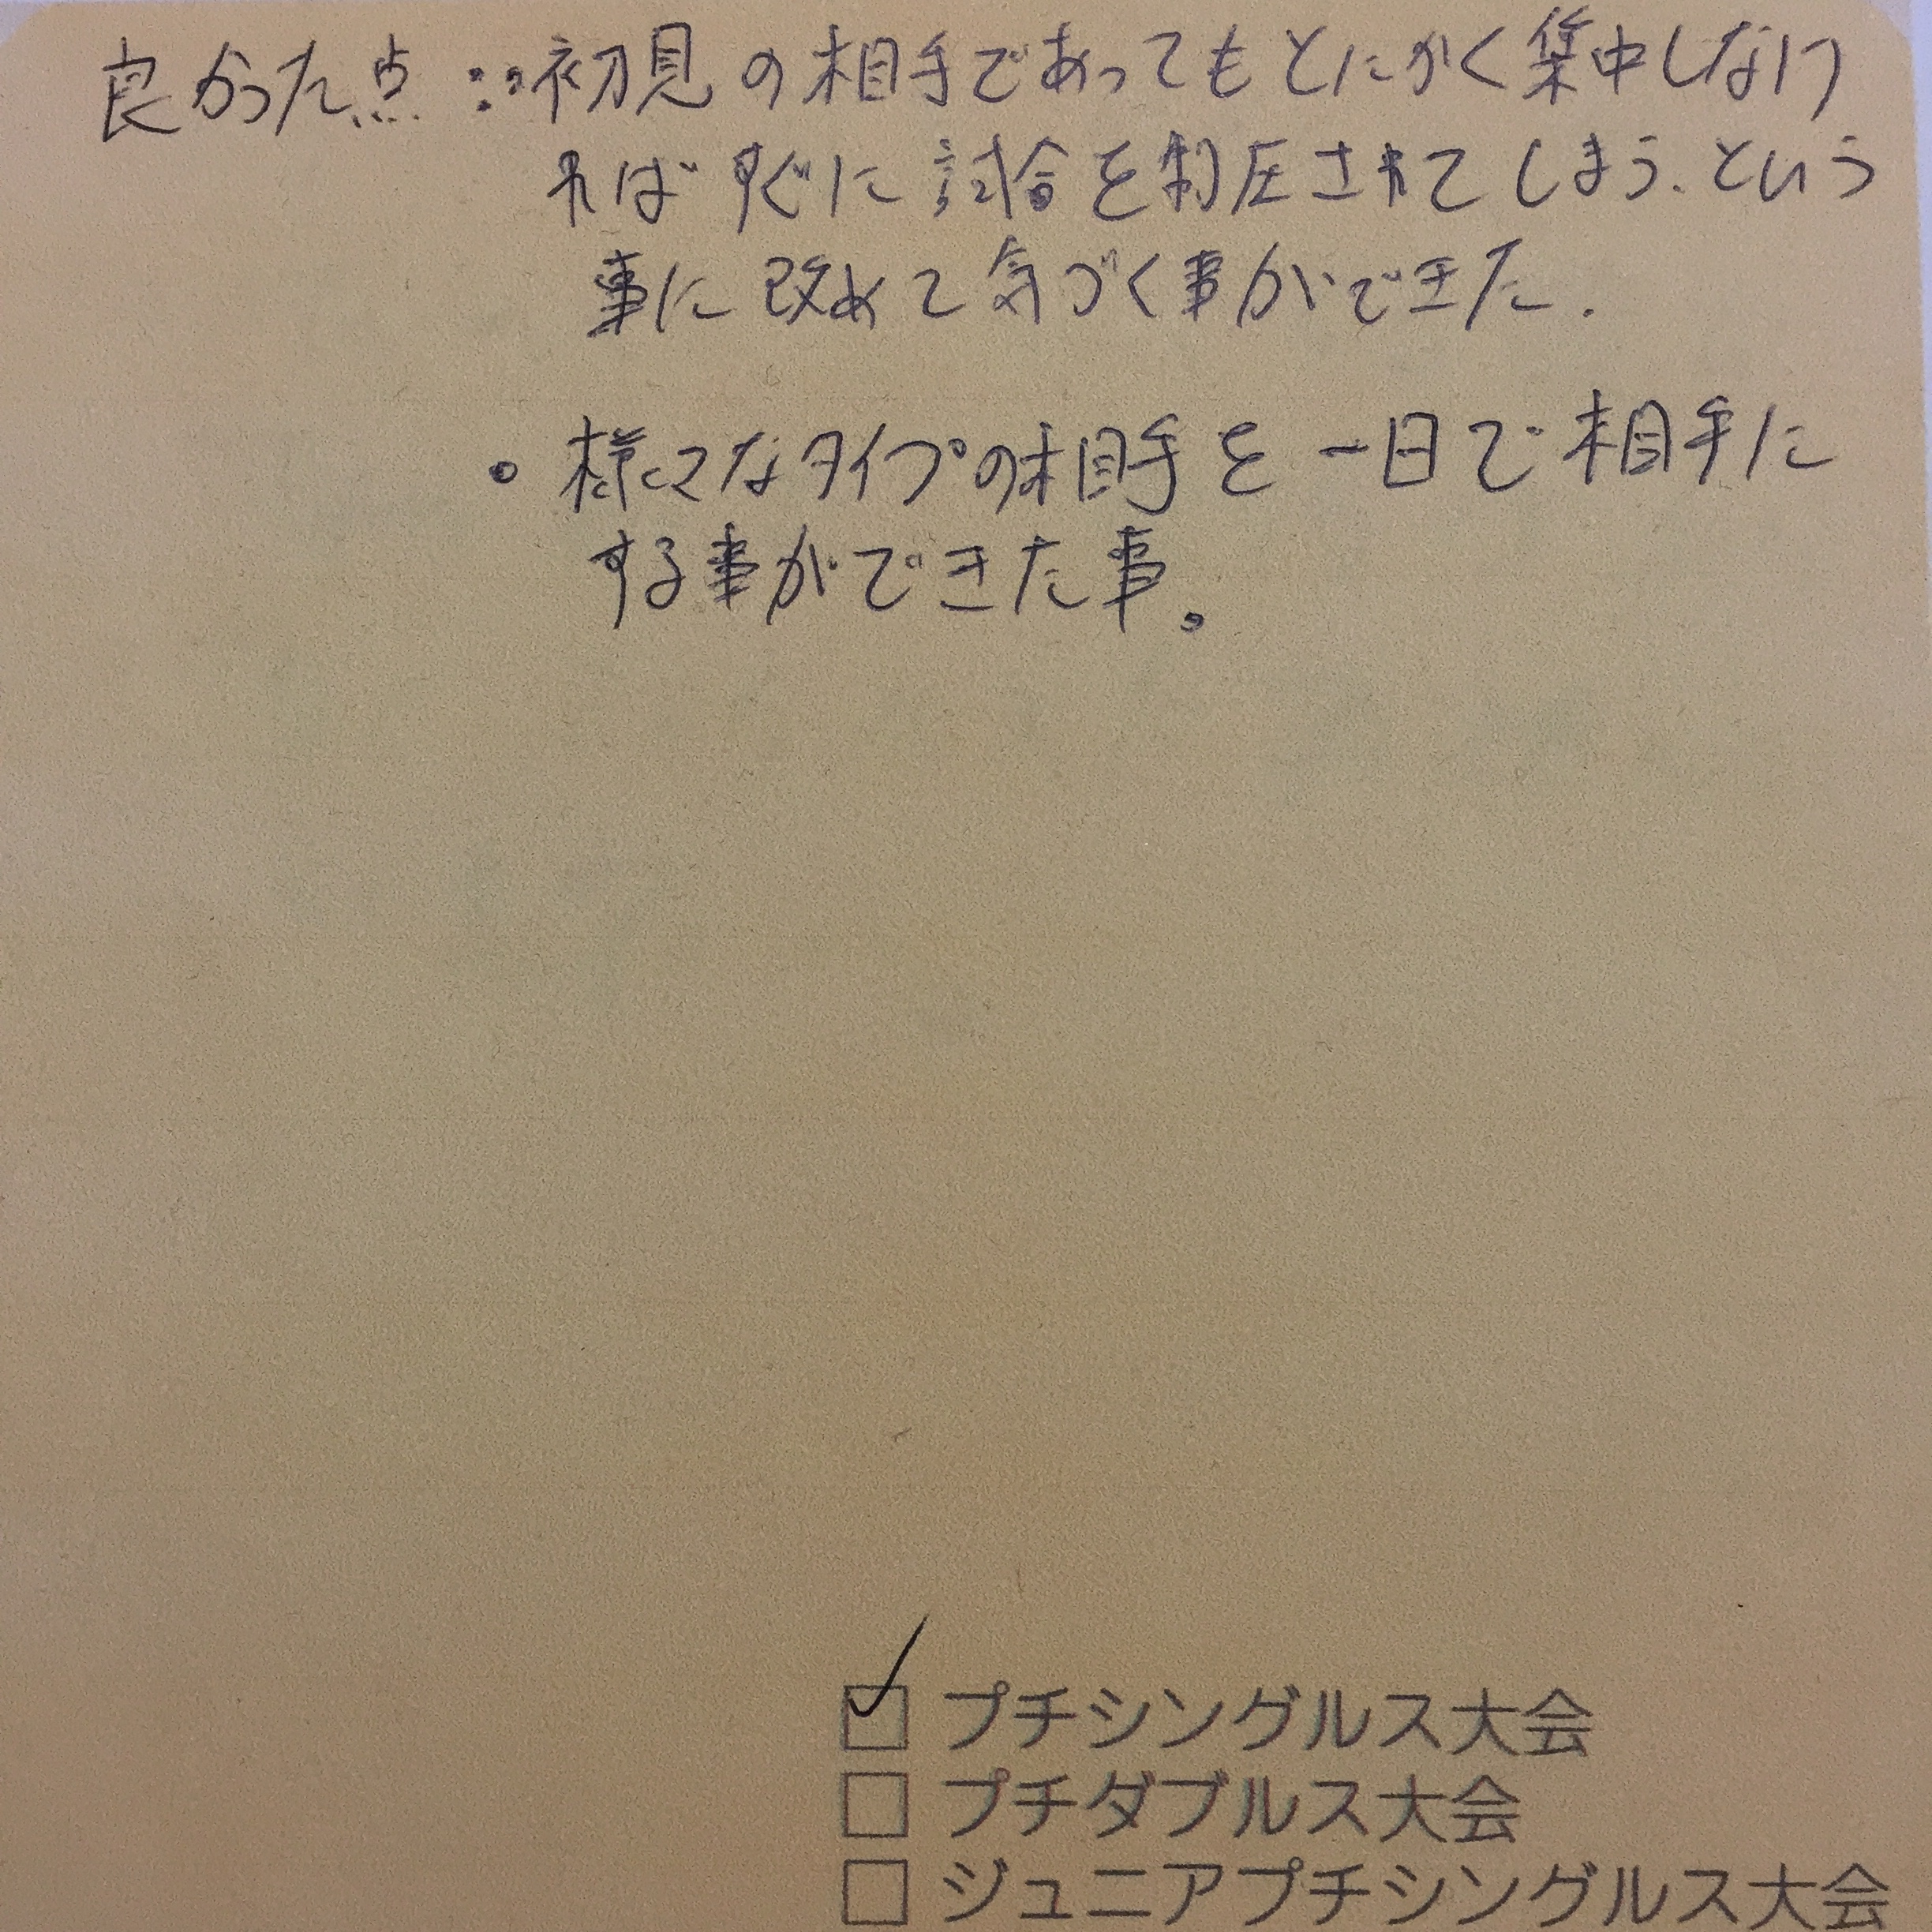 良かった点:・初見の相手であってもとにかく集中しなけ
ればすぐに試合を制圧されてしまう、という
事に改めて気づく事ができた.
・様々なタイプの相手を一日で相手に
する事ができた事。
☑ プチシングルス大会
□ プチダブルス大会
□ ジュニアプチシングルス大会